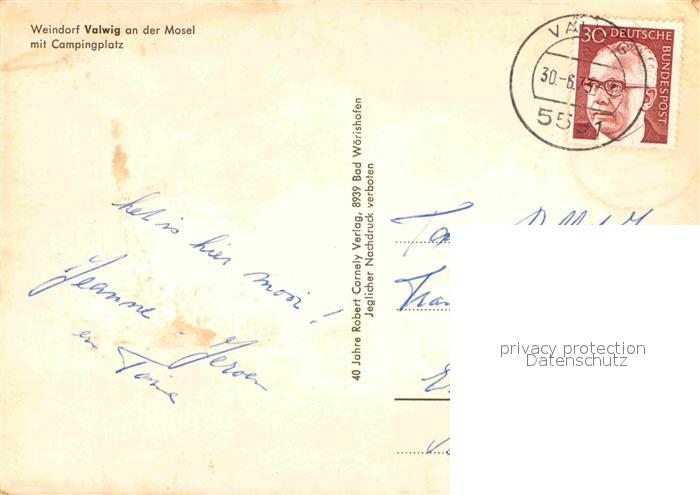 Weindorf Valwig an der Mosel
mit Campingplatz
VALWIG
30.-6.73
5591
30 DEUTSCHE
BUNDESPOST
40 Jahre Robert Cornely Verlag, 8939 Bad Wörishofen
Jeglicher Nachdruck verboten
het is hier mooi!
Jeanne - Jeroen
en Toine
privacy protection
Datenschutz